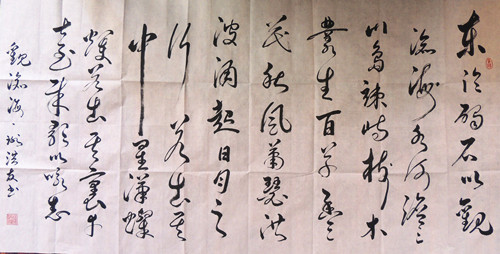 東临碣石以觀
滄海水何澹々
山島竦峙樹木
叢生百草豐
茂秋風蕭瑟洪
波涌起日月之
行若出其
中星漢燦
爛若出其裏幸
甚至哉歌以詠志
觀滄海 洪友書